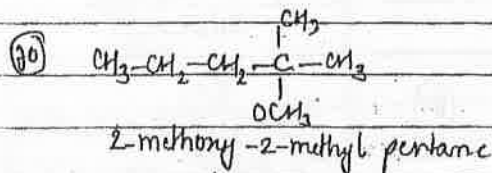 CH3
(20) CH3-CH2-CH2-C-CH3
OCH3
2-methoxy-2-methyl pentane